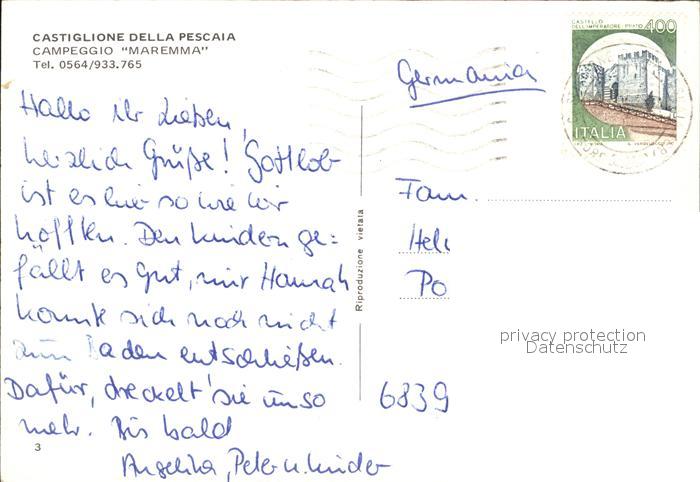 CASTIGLIONE DELLA PESCAIA
CAMPEGGIO "MAREMMA"
Tel. 0564/933.765
Hallo Ihr Lieben,
herzlich Grüße! Gottlob
ist es hier so wie wir
hofften. Den Kindern ge=
fällt es gut, nur Hannah
konnte sich noch nicht
zum Baden entschließen.
Dafür, dreckelt sie umso
mehr. Bis bald
Angelika, Peter u. Kinder
3
Riproduzione vietata
CASTELLO
DELL'IMPERATORE - PRATO
400
ITALIA
Germania
Fam.
Hel
Po
6839
privacy protection
Datenschutz